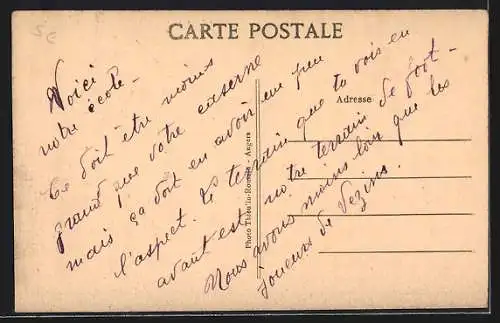 5€
CARTE POSTALE
Adresse
Photo Théau - Angers
Voici
notre école.
Ce doit être moins
grand que votre caserne
mais ça doit en avoir un peu
l'aspect. Le terrain que tu vois en
avant est notre terrain de foot-
Nous avons moins loin que les
joueurs de Vezins.